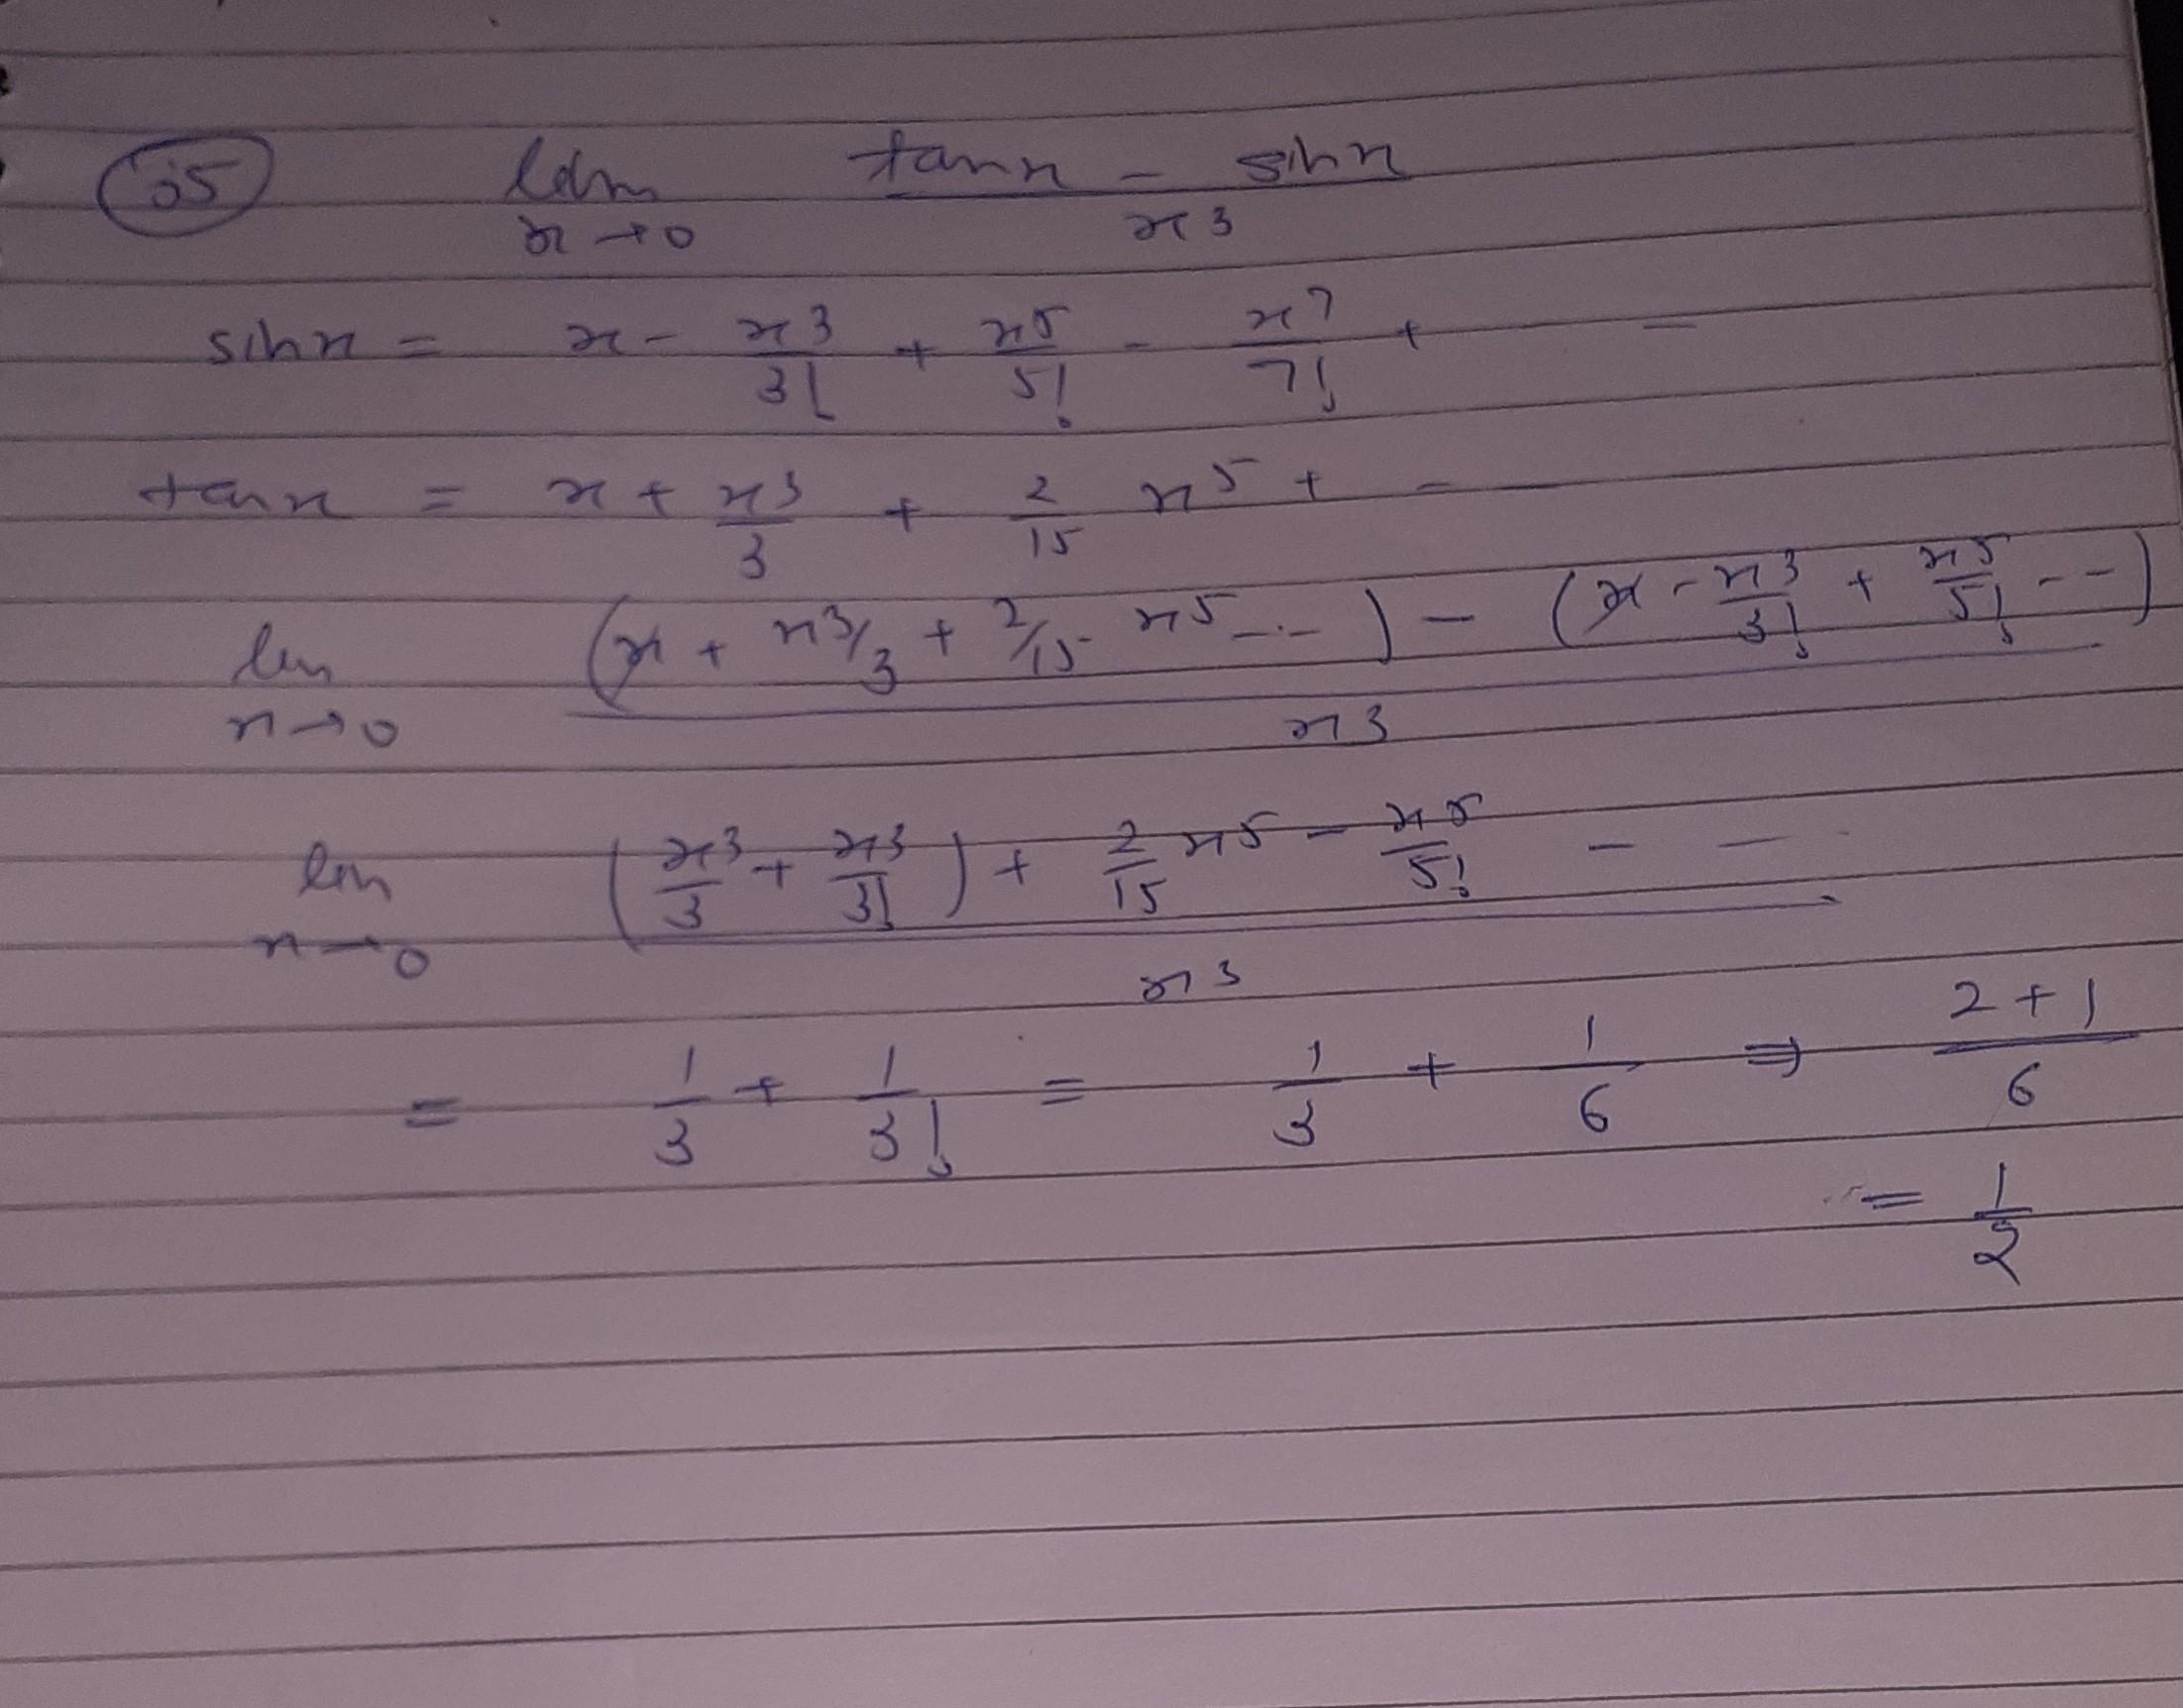 05 lim x→0 (tan x - sin x)/x³
sin x = x - x³/3! + x⁵/5! - x⁷/7! + - 
tan x = x + x³/3 + 2/15 x⁵ + - -
lim x→0 ((x + x³/3 + 2/15 x⁵ ---) - (x - x³/3! + x⁵/5! --))/x³
lim x→0 ((x³/3 + x³/3!) + 2/15 x⁵ - x⁵/5! - -)/x³
= 1/3 + 1/3! = 1/3 + 1/6 ⇒ (2+1)/6
= 1/2